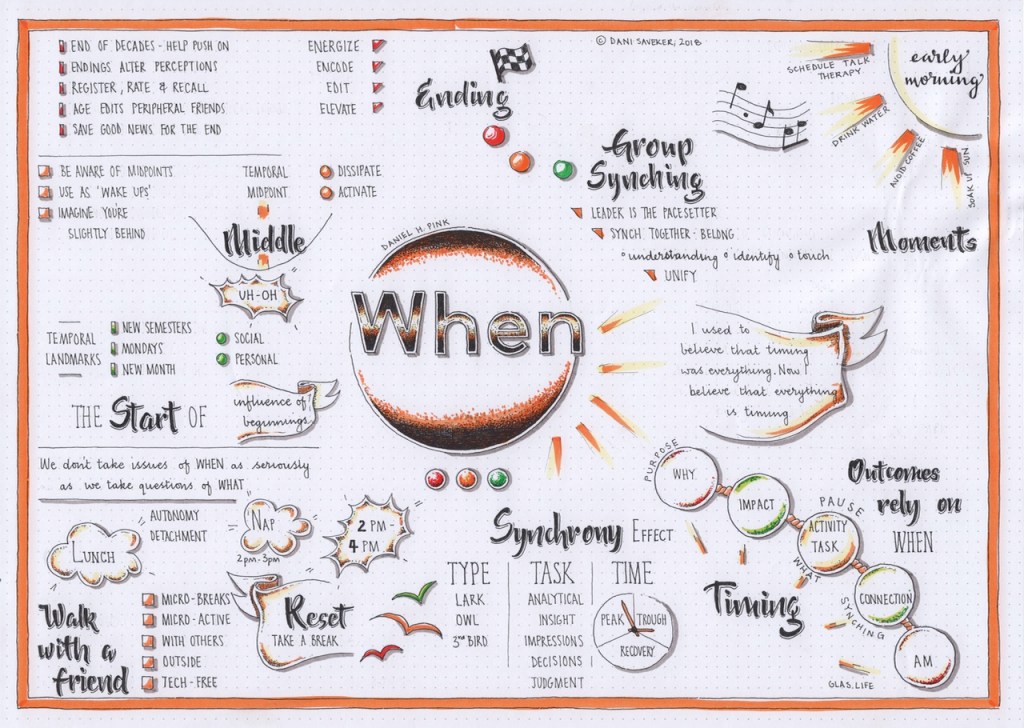 END OF DECADES - HELP PUSH ON
ENDINGS ALTER PERCEPTIONS
REGISTER, RATE & RECALL
AGE EDITS PERIPHERAL FRIENDS
SAVE GOOD NEWS FOR THE END
ENERGIZE
ENCODE
EDIT
ELEVATE
Ending
© DANI SAVEKER, 2018
SCHEDULE TALK
THERAPY
early
morning
DRINK WATER
AVOID COFFEE
SOAK UP SUN
Moments
Group
Synching
LEADER IS THE PACESETTER
SYNCH TOGETHER - BELONG
understanding identify touch
UNIFY
BE AWARE OF MIDPOINTS
USE AS 'WAKE UPS'
IMAGINE YOU'RE
SLIGHTLY BEHIND
TEMPORAL
MIDPOINT
DISSIPATE
ACTIVATE
Middle
UH-OH
DANIEL H. PINK
When
TEMPORAL
LANDMARKS
NEW SEMESTERS
MONDAYS
NEW MONTH
SOCIAL
PERSONAL
THE Start OF
influence of
beginnings
I used to
believe that timing
was everything. Now I
believe that everything
is timing
We don't take issues of WHEN as seriously
as we take questions of WHAT
LUNCH
AUTONOMY
DETACHMENT
NAP
2pm-3pm
2 PM -
4 PM
Walk
with a
friend
MICRO-BREAKS
MICRO-ACTIVE
WITH OTHERS
OUTSIDE
TECH-FREE
Reset
TAKE A BREAK
Synchrony EFFECT
TYPE
LARK
OWL
3RD BIRD
TASK
ANALYTICAL
INSIGHT
IMPRESSIONS
DECISIONS
JUDGMENT
TIME
PEAK
TROUGH
RECOVERY
Timing
PURPOSE
WHY
IMPACT
PAUSE
ACTIVITY
TASK
WHAT
CONNECTION
SYNCHING
I AM
Outcomes
rely on
WHEN
GLAS.LIFE